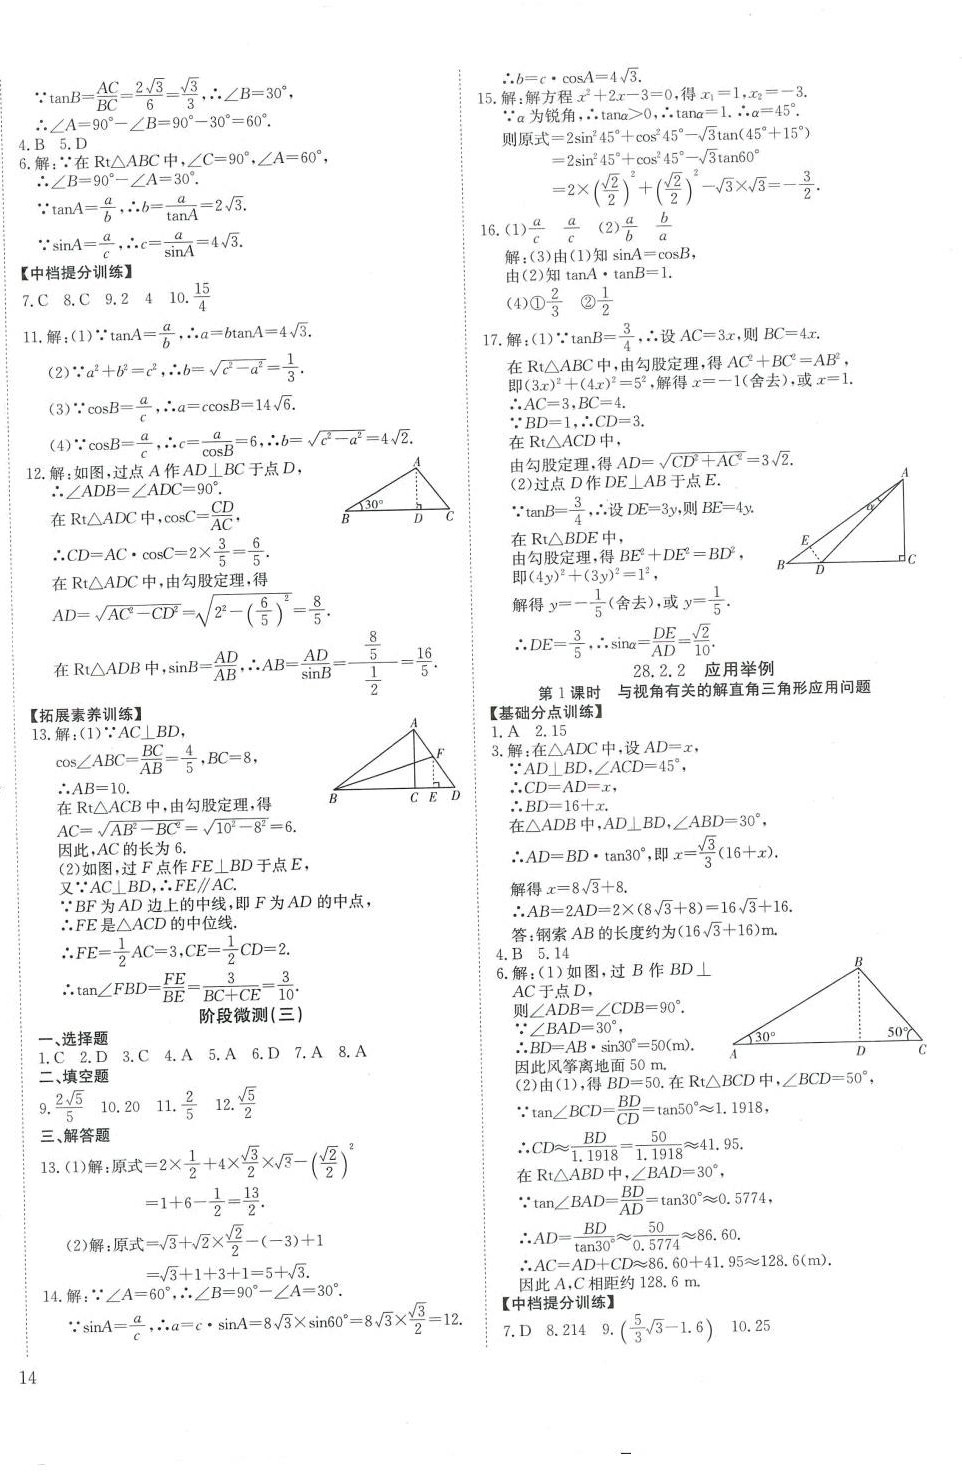 ∵tanB=AC/BC=2√3/6=√3/3,∴∠B=30°,
∴∠A=90°-∠B=90°-30°=60°.
4.B 5.D
6.解:∵在Rt△ABC中,∠C=90°,∠A=60°,
∴∠B=90°-∠A=30°.
∵tanA=a/b,∴b=a/tanA=2√3.
∵sinA=a/c,∴c=a/sinA=4√3.
【中档提分训练】
7.C 8.C 9.2 4 10.15/4
11.解:(1)∵tanA=a/b,∴a=btanA=4√3.
(2)∵a²+b²=c²,∴b=√(c²-a²)=1/3.
(3)∵cosB=a/c,∴a=ccosB=14√6.
(4)∵cosB=a/c,∴c=a/cosB=6,∴b=√(c²-a²)=4√2.
12.解:如图,过点A作AD⊥BC于点D,
∴∠ADB=∠ADC=90°.
在Rt△ADC中,cosC=CD/AC,
∴CD=AC·cosC=2×3/5=6/5.
在Rt△ADC中,由勾股定理,得
AD=√(AC²-CD²)=√(2²-(6/5)²)=8/5.
在Rt△ADB中,sinB=AD/AB,∴AB=AD/sinB=(8/5)/(1/2)=16/5.
A
30°
B D C
【拓展素养训练】
13.解:(1)∵AC⊥BD,
cos∠ABC=BC/AB=4/5,BC=8,
∴AB=10.
在Rt△ACB中,由勾股定理,得
AC=√(AB²-BC²)=√(10²-8²)=6.
因此,AC的长为6.
(2)如图,过F点作FE⊥BD于点E,
又∵AC⊥BD,∴FE∥AC.
∵BF为AD边上的中线,即F为AD的中点,
∴FE是△ACD的中位线.
∴FE=1/2AC=3,CE=1/2CD=2.
∴tan∠FBD=FE/BE=3/(BC+CE)=3/10.
A
F
B C E D
阶段微测(三)
一、选择题
1.C 2.D 3.C 4.A 5.A 6.D 7.A 8.A
二、填空题
9.2√5/5 10.20 11.2/5 12.√5/2
三、解答题
13.(1)解:原式=2×1/2+4×√3/2×√3-(√2/2)²
=1+6-1/2=13/2.
(2)解:原式=√3+√2×√2/2-(-3)+1
=√3+1+3+1=5+√3.
14.解:∵∠A=60°,∴∠B=90°-∠A=30°.
∵sinA=a/c,∴a=c·sinA=8√3×sin60°=8√3×√3/2=12.
14
∴b=c·cosA=4√3.
15.解:解方程x²+2x-3=0,得x₁=1,x₂=-3.
∵α为锐角,∴tanα>0,∴tanα=1.∴α=45°.
则原式=2sin²45°+cos²45°-√3tan(45°+15°)
=2sin²45°+cos²45°-√3tan60°
=2×(√2/2)²+(√2/2)²-√3×√3=-3/2.
16.(1)a/c a/c (2)a/b b/a
解:(3)由(1)知sinA=cosB,
由(2)知tanA·tanB=1.
(4)①2/3 ②1/2
17.解:(1)∵tanB=3/4,∴设AC=3x,则BC=4x.
在Rt△ABC中,由勾股定理,得AC²+BC²=AB²,
即(3x)²+(4x)²=5²,解得x=-1(舍去),或x=1.
∴AC=3,BC=4.
∵BD=1,∴CD=3.
在Rt△ACD中,
由勾股定理,得AD=√(CD²+AC²)=3√2.
(2)过点D作DE⊥AB于点E.
∵tanB=3/4,∴设DE=3y,则BE=4y.
在Rt△BDE中,
由勾股定理,得BE²+DE²=BD²,
即(4y)²+(3y)²=1²,
解得y=-1/5(舍去),或y=1/5.
∴DE=3/5,∴sinα=DE/AD=√2/10.
A
α
E
B D C
28.2.2 应用举例
第1课时 与视角有关的解直角三角形应用问题
【基础分点训练】
1.A 2.15
3.解:在△ADC中,设AD=x,
∵AD⊥BD,∠ACD=45°,
∴CD=AD=x,
∴BD=16+x.
在△ADB中,AD⊥BD,∠ABD=30°,
∴AD=BD·tan30°,即x=√3/3(16+x).
解得x=8√3+8.
∴AB=2AD=2×(8√3+8)=16√3+16.
答:钢索AB的长度约为(16√3+16)m.
4.B 5.14
6.解:(1)如图,过B作BD⊥
AC于点D,
则∠ADB=∠CDB=90°.
∵∠BAD=30°,
∴BD=AB·sin30°=50(m).
因此风筝离地面50 m.
B
30° 50°
A D C
(2)由(1),得BD=50.在Rt△BCD中,∠BCD=50°,
∵tan∠BCD=BD/CD=tan50°≈1.1918,
∴CD≈BD/1.1918=50/1.1918≈41.95.
在Rt△ABD中,∠BAD=30°,
∵tan∠BAD=BD/AD=tan30°≈0.5774,
∴AD=BD/tan30°≈50/0.5774≈86.60.
∴AC=AD+CD≈86.60+41.95≈128.6(m).
因此A,C相距约128.6 m.
【中档提分训练】
7.D 8.214 9.(5/3√3-1.6) 10.25